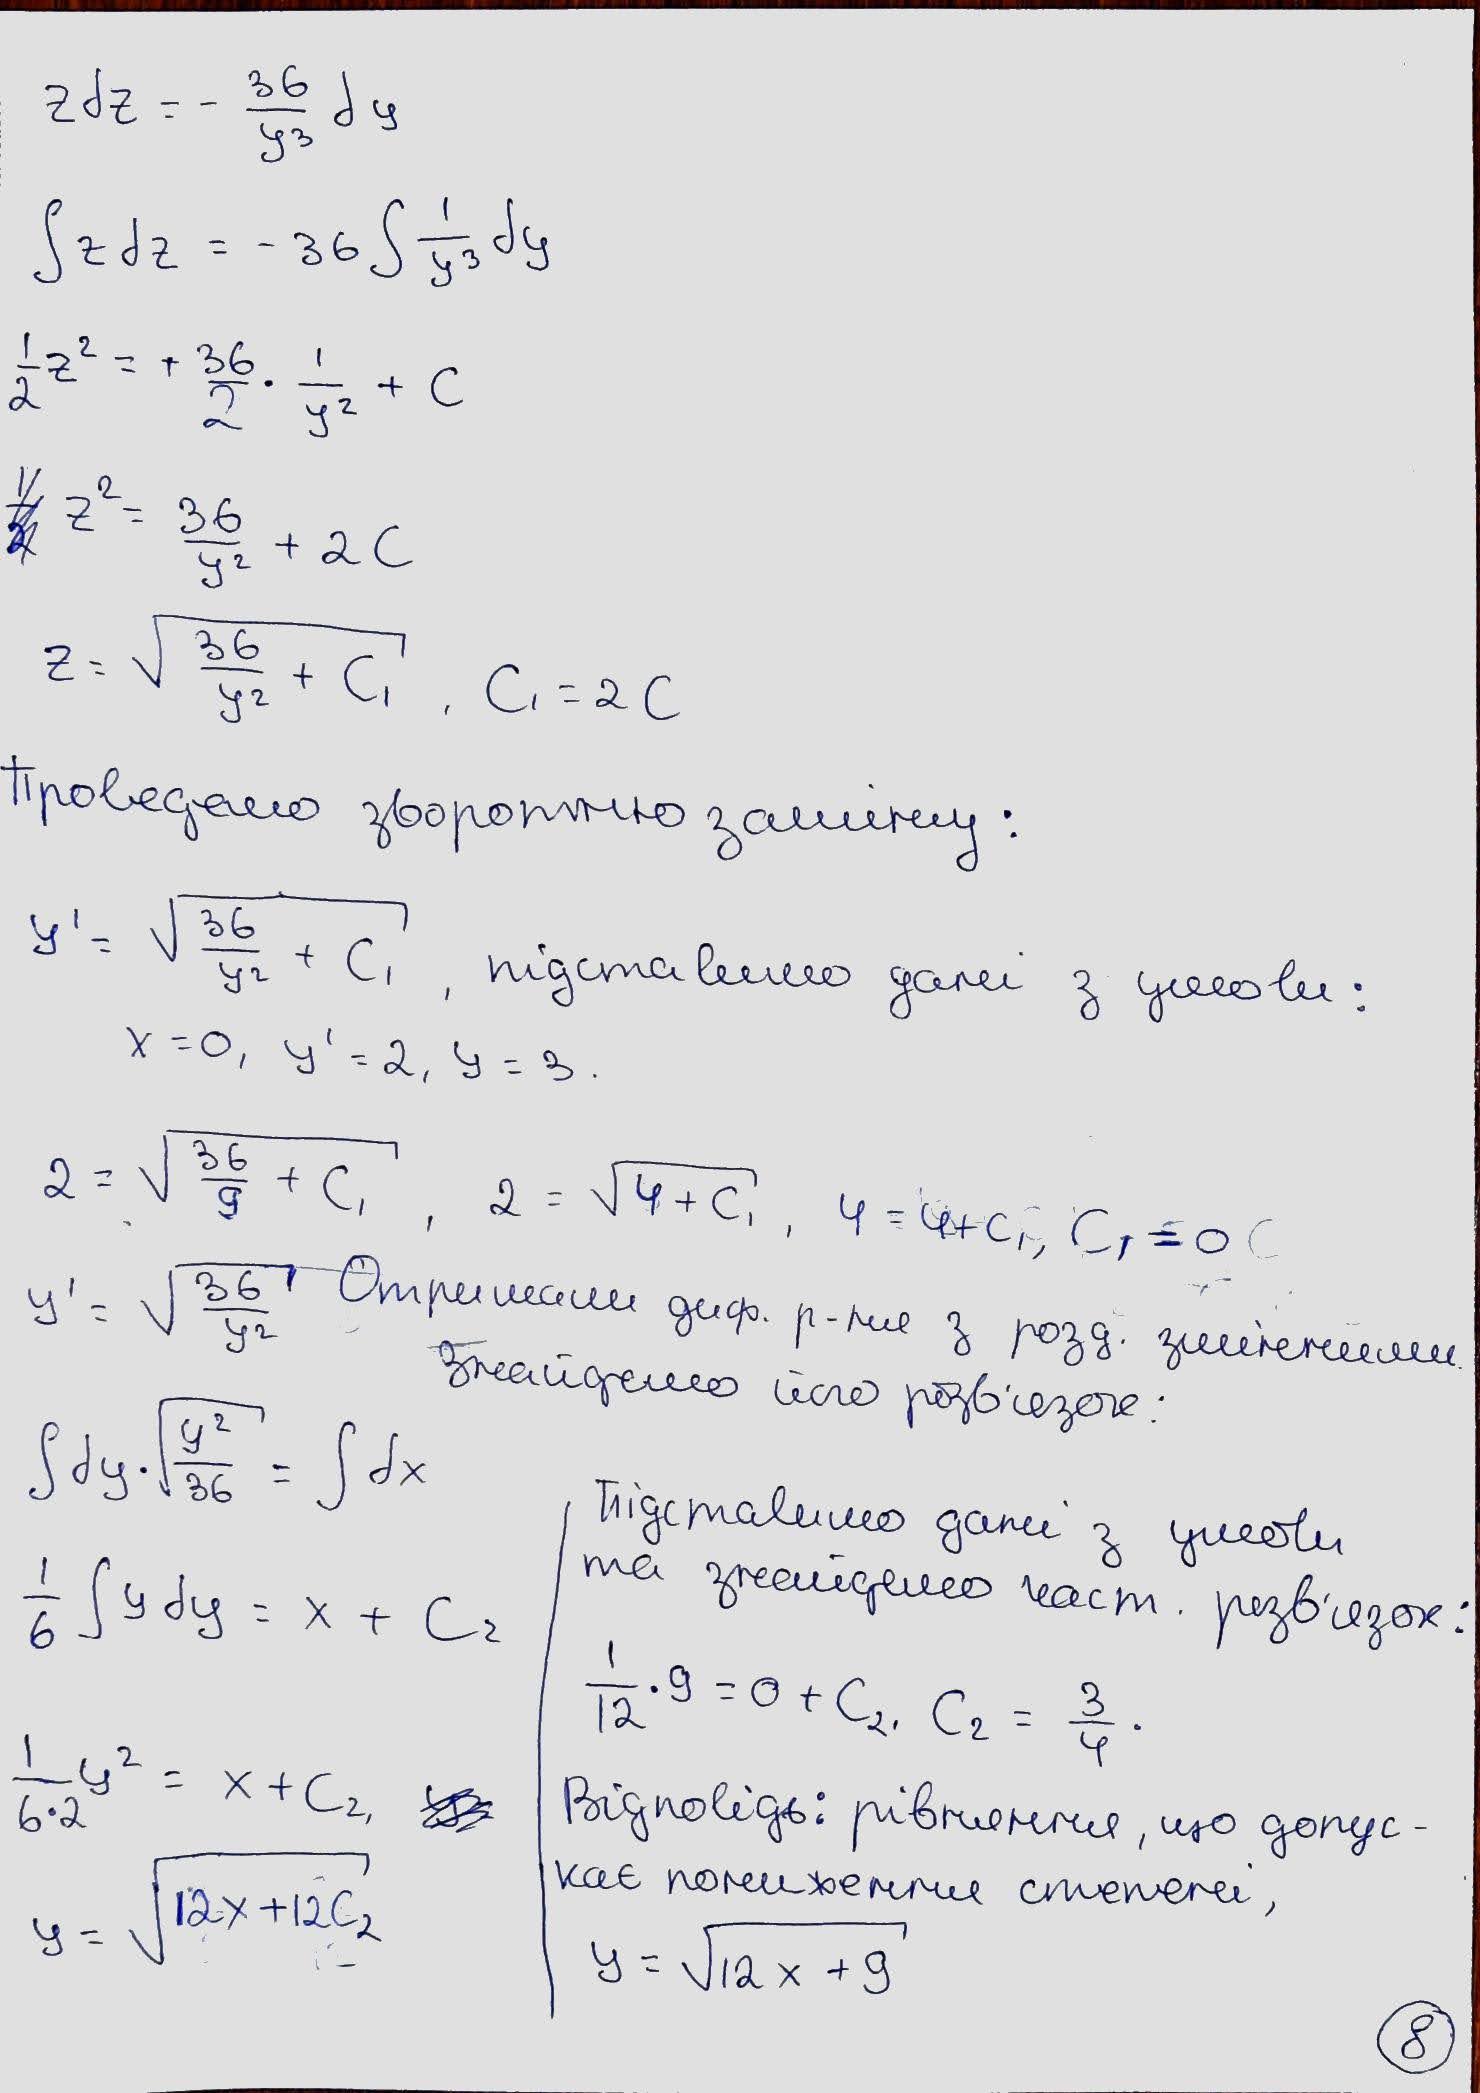 zdz = - 36/y³ dy
∫zdz = -36 ∫ 1/y³ dy
1/2 z² = + 36/2 · 1/y² + C
z² = 36/y² + 2C
z = √(36/y² + C₁), C₁ = 2C
Проведемо зворотню заміну:
y' = √(36/y² + C₁), підставимо дані з умови:
x = 0, y' = 2, y = 3.
2 = √(36/9 + C₁), 2 = √(4 + C₁), 4 = 4 + C₁, C₁ = 0
y' = √(36/y²) Отримали диф. р-ня з розд. змінними.
Знайдемо його розв'язок:
∫dy·√(y²/36) = ∫dx
1/6 ∫ydy = x + C₂
1/(6·2) y² = x + C₂,
y = √(12x + 12C₂)
Підставимо дані з умови
та знайдемо част. розв'язок:
1/12 · 9 = 0 + C₂, C₂ = 3/4.
Відповідь: рівняння, що допус-
кає пониження степені,
y = √(12x + 9)
8